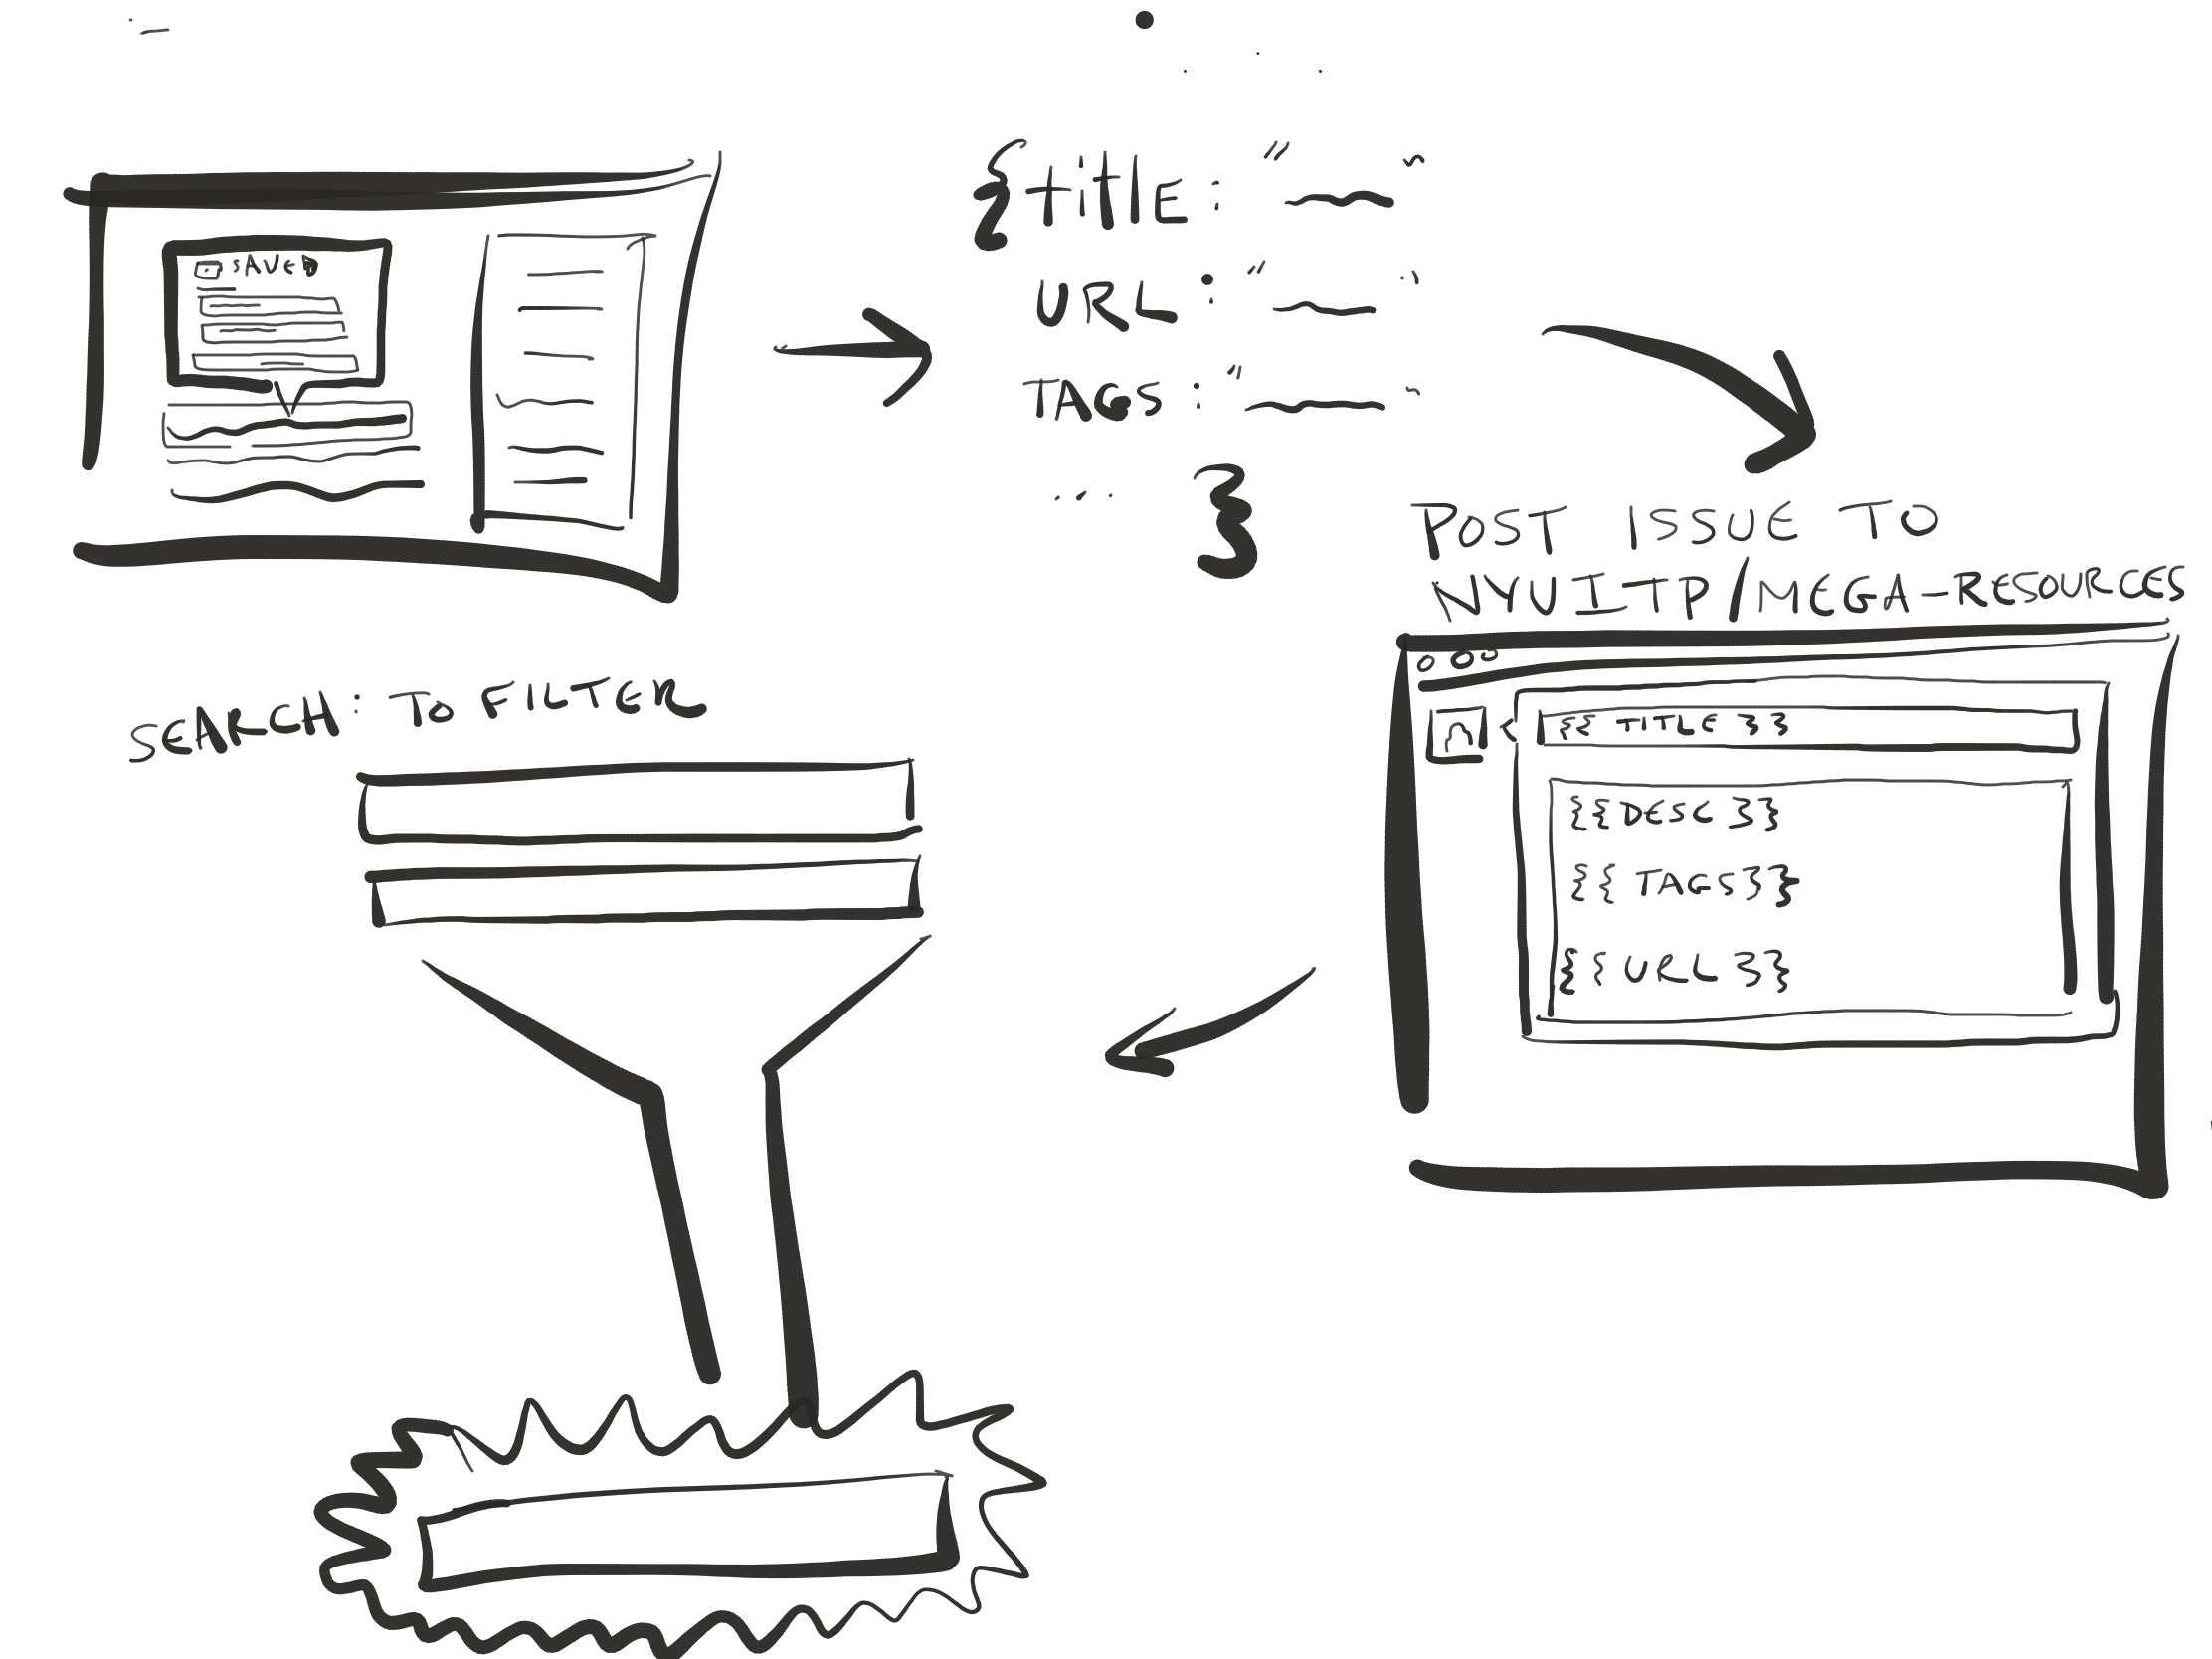 SAVED
{title: "
URL: "
TAGS: "
... }
POST ISSUE TO
NYUITP/MEGA-RESOURCES
{{ TITLE }}
{{DESC }}
{{ TAGS}}
{{ URL }}
SEARCH: TO FILTER